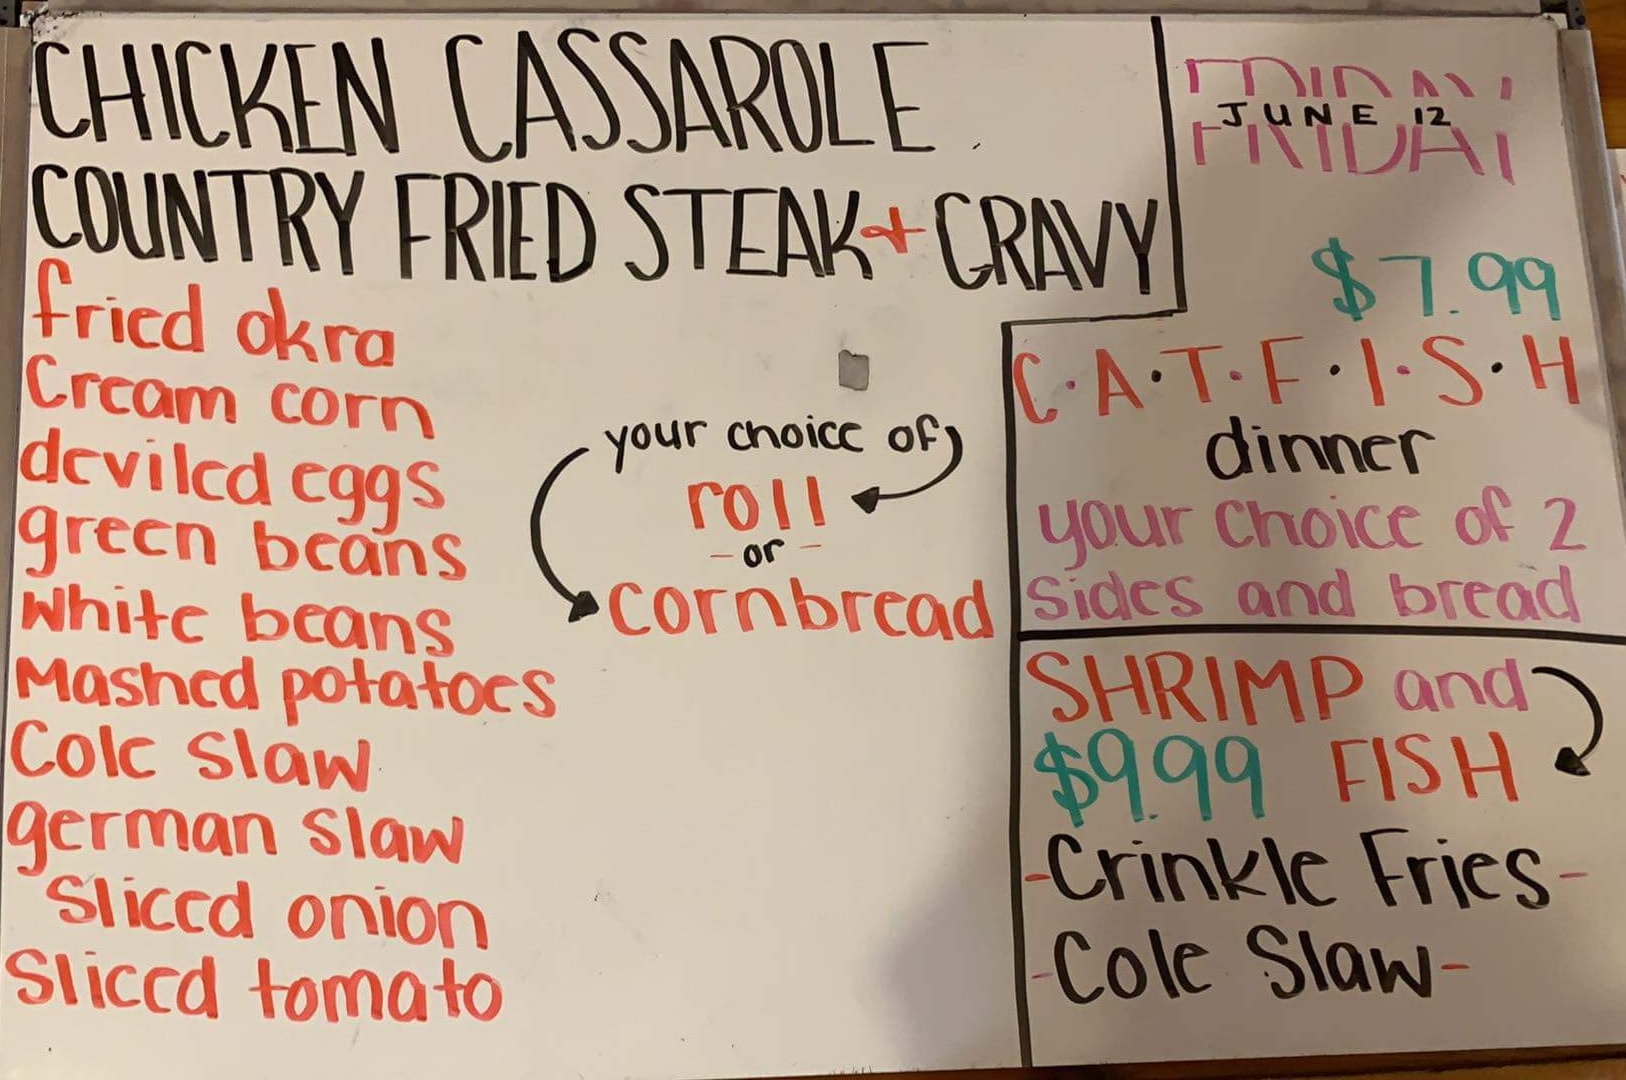 CHICKEN CASSAROLE
COUNTRY FRIED STEAK + GRAVY
fried okra
Cream corn
deviled eggs
green beans
white beans
Mashed potatoes
Cole slaw
german slaw
Sliced onion
Sliced tomato
your choice of
roll
- or -
cornbread
FRIDAY
JUNE 12
$7.99
C·A·T·F·I·S·H
dinner
your choice of 2
sides and bread
SHRIMP and
$9.99 FISH
-Crinkle Fries-
-Cole Slaw-